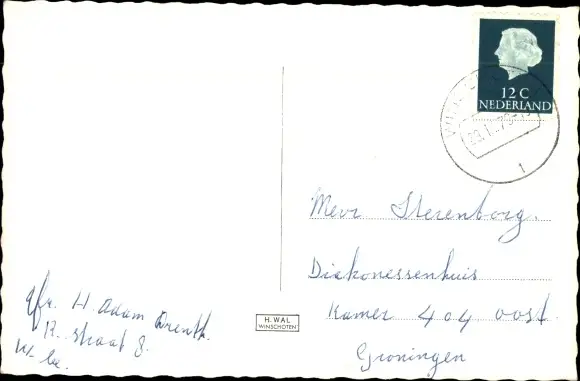 12 C
NEDERLAND
Mevr Sterenborg.
Diakonessenhuis
Kamer 404 oost.
Groningen
H. WAL
WINSCHOTEN
H. Adam Drenth.
straat 8.